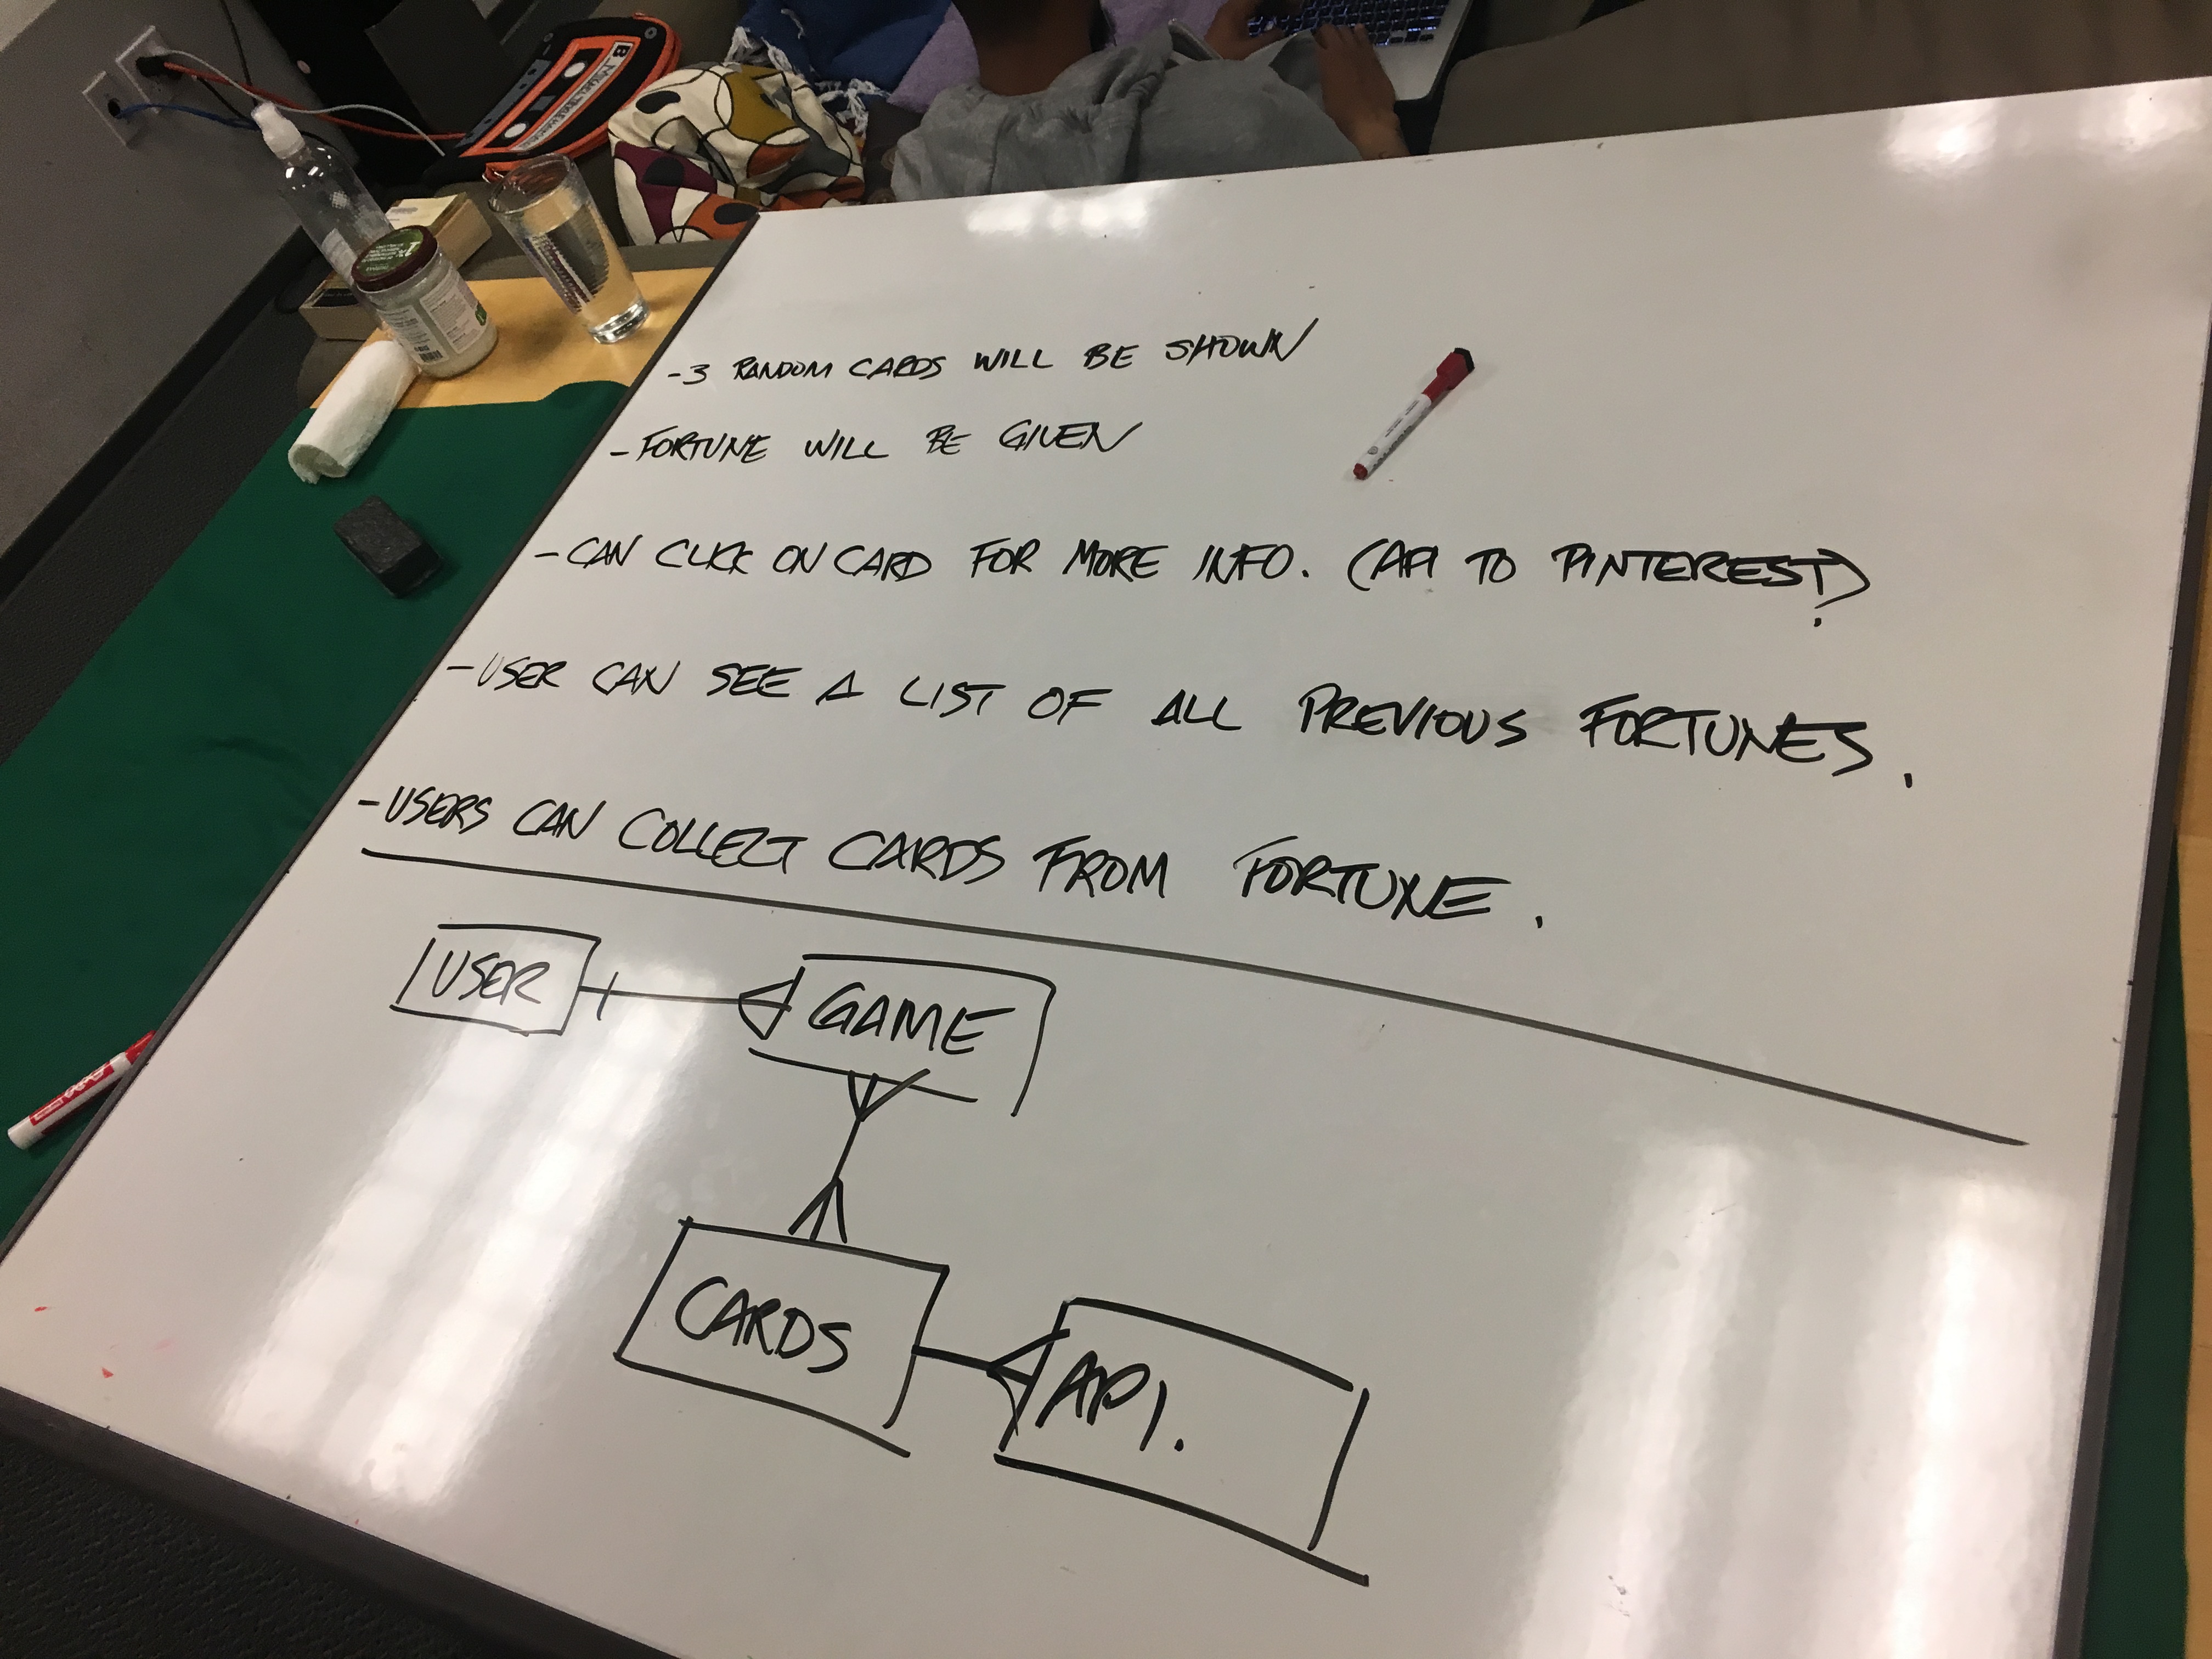 - 3 RANDOM CARDS WILL BE SHOWN
- FORTUNE WILL BE GIVEN
- CAN CLICK ON CARD FOR MORE INFO. (API TO PINTEREST?)
- USER CAN SEE A LIST OF ALL PREVIOUS FORTUNES.
- USERS CAN COLLECT CARDS FROM FORTUNE.
USER
GAME
CARDS
API.